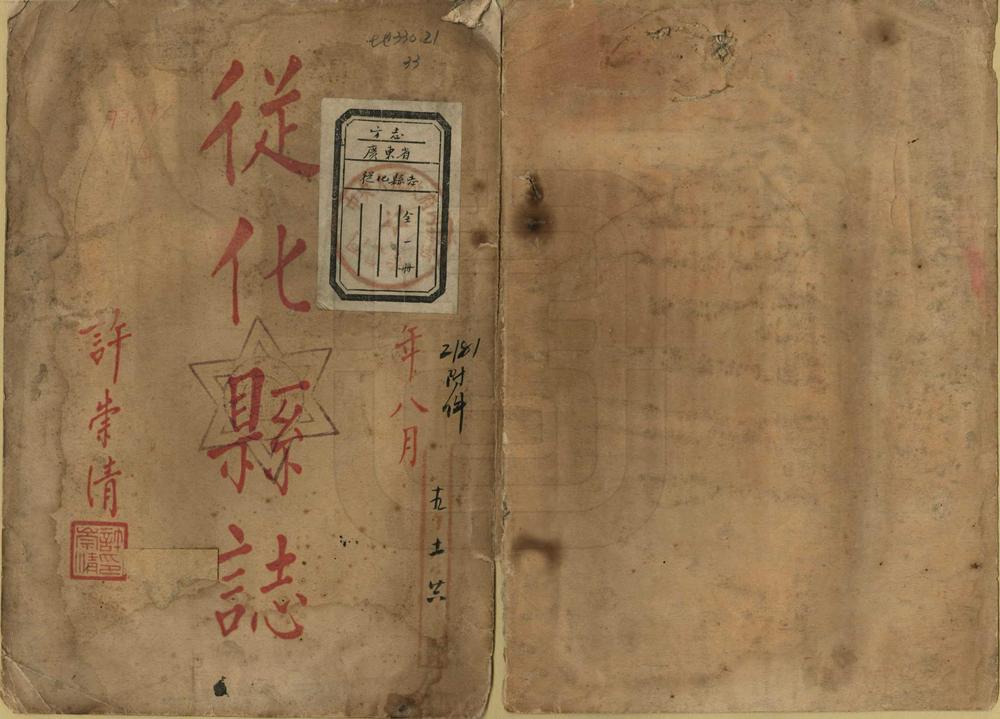 地330.21
33
方志
廣東省
從化縣志
全一冊
年八月
2181
附件
從化縣誌
許崇清
許崇清印